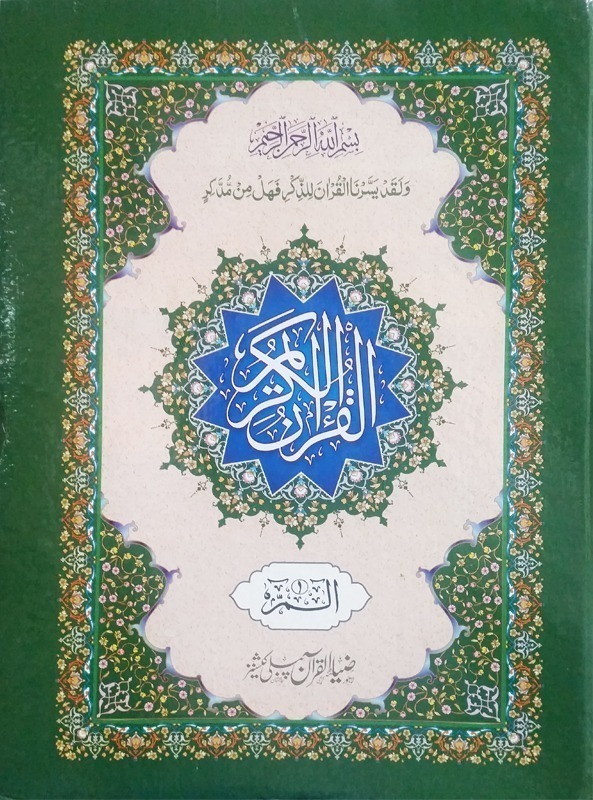 بِسْمِ اللهِ الرَّحْمٰنِ الرَّحِيْمِ
وَلَقَدْ يَسَّرْنَا الْقُرْاٰنَ لِلذِّكْرِ فَهَلْ مِنْ مُّدَّكِرٍ
القرءان الكريم
۱
الٓمّٓ
ضیاءالقرآن پبلی کیشنز
لاہور